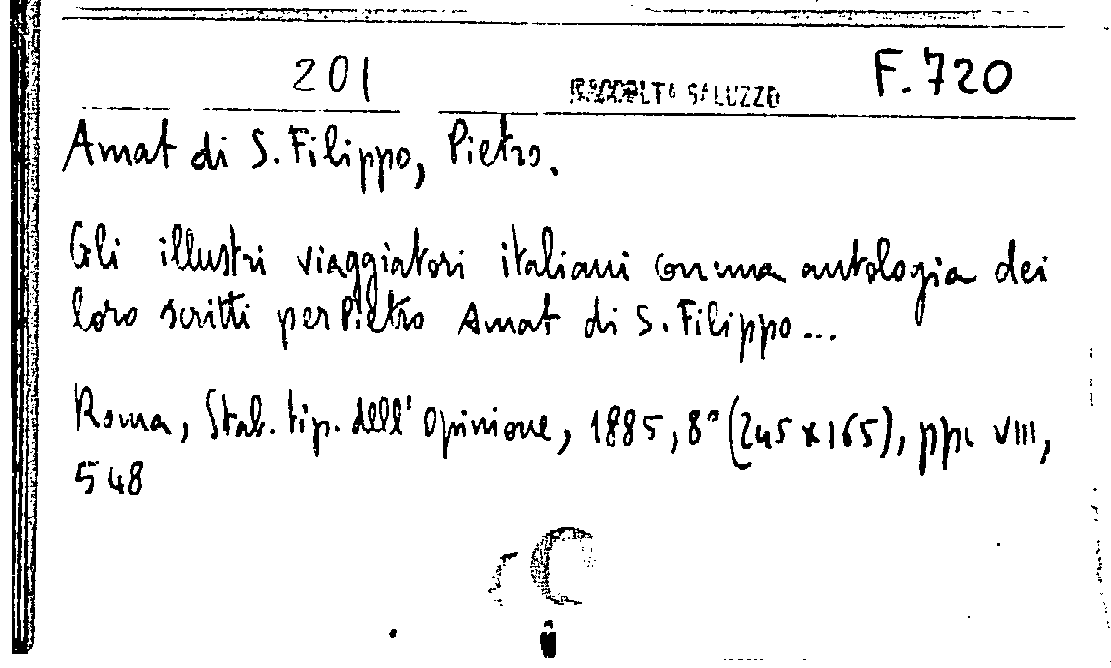 201 RACCOLTA SALUZZO F.720
Amat di S. Filippo, Pietro.
Gli illustri viaggiatori italiani con una antologia dei
loro scritti per Pietro Amat di S. Filippo...
Roma, Stab. tip. dell'Opinione, 1885, 8° (245x165), pp. VIII,
548